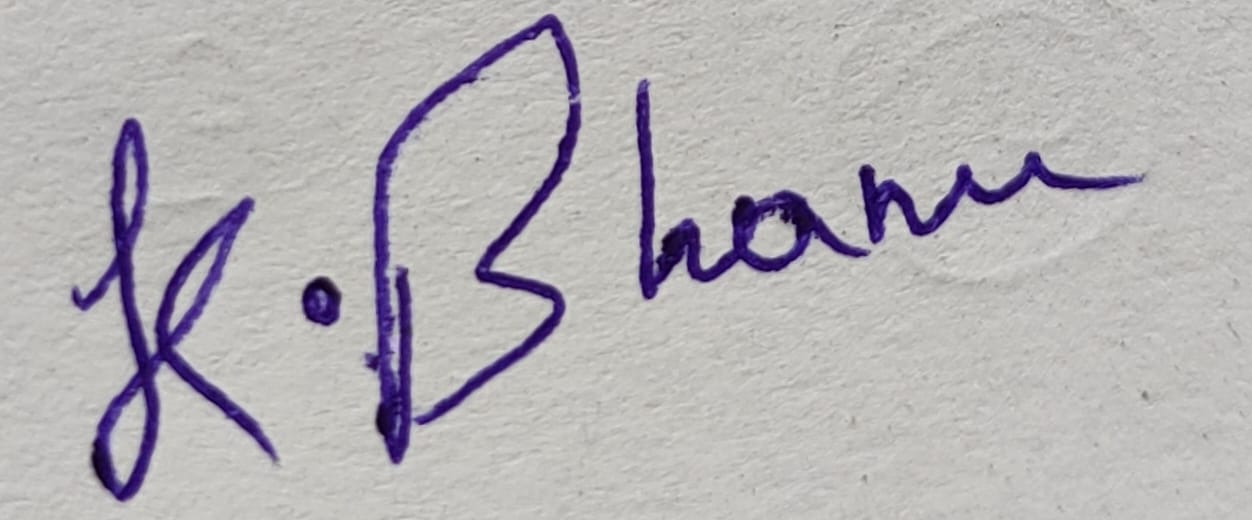 K. Bhanu